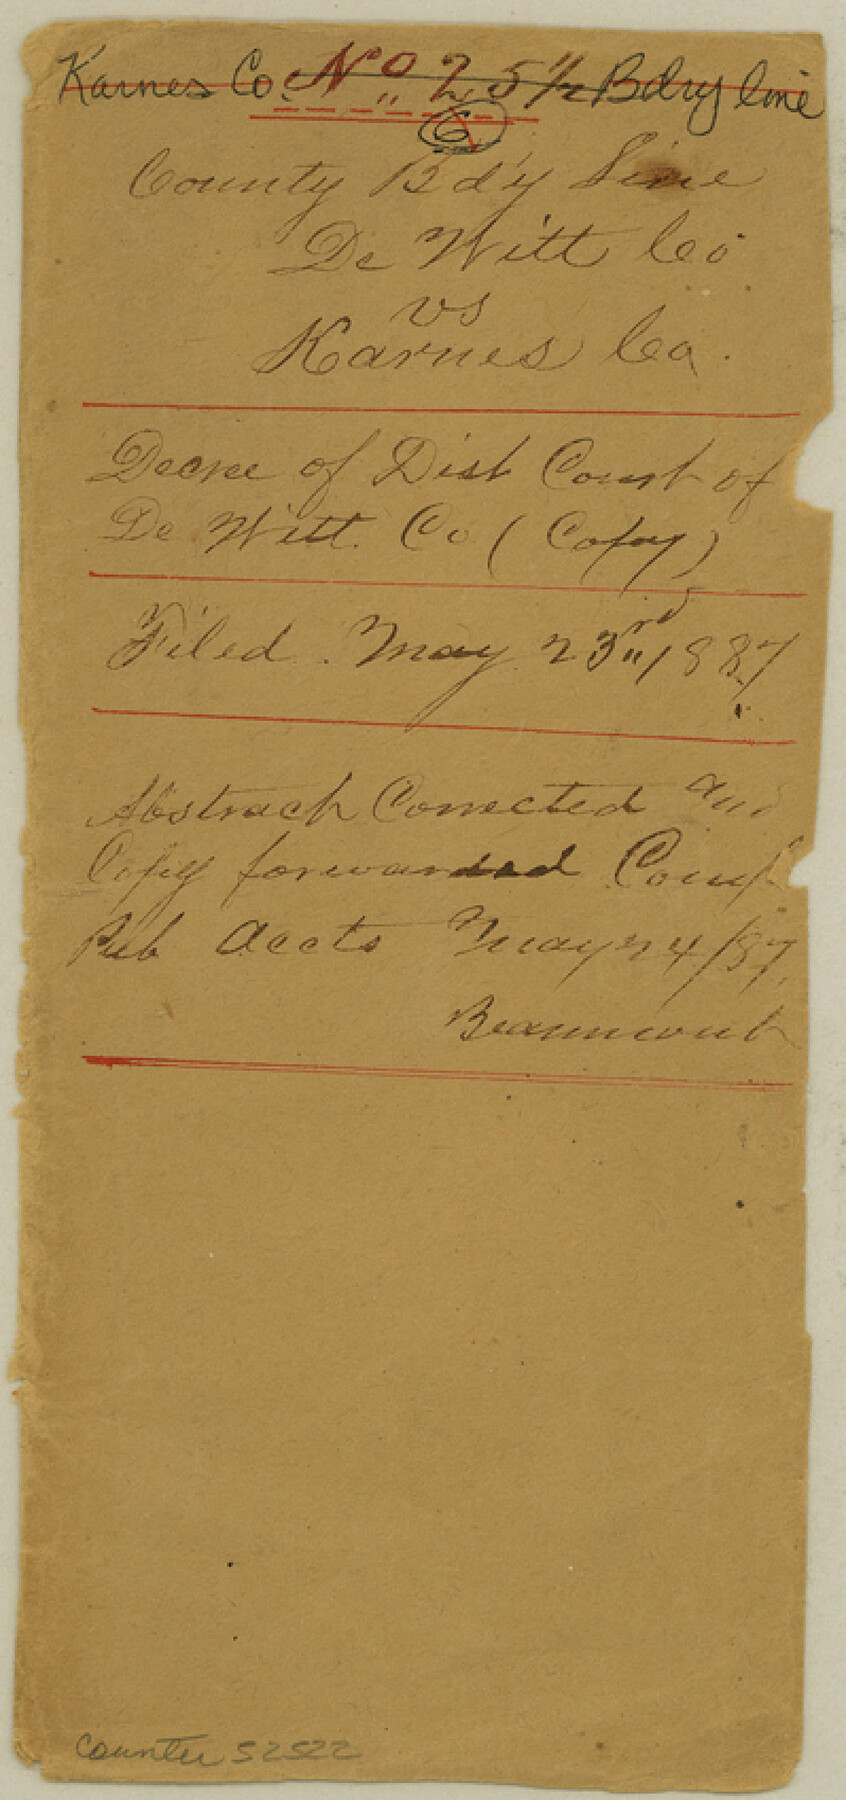 Karnes Co. No. 25 1/2 Bdry line
6
County Bd'y Line
De Witt Co
vs
Karnes Co.
Decree of Dist Court of
De Witt Co (Copy)
Filed May 23rd 1887
Abstract Corrected and
Copy forwarded Comp
Pub Accts May 24/87
Beaumont
Counter 52522